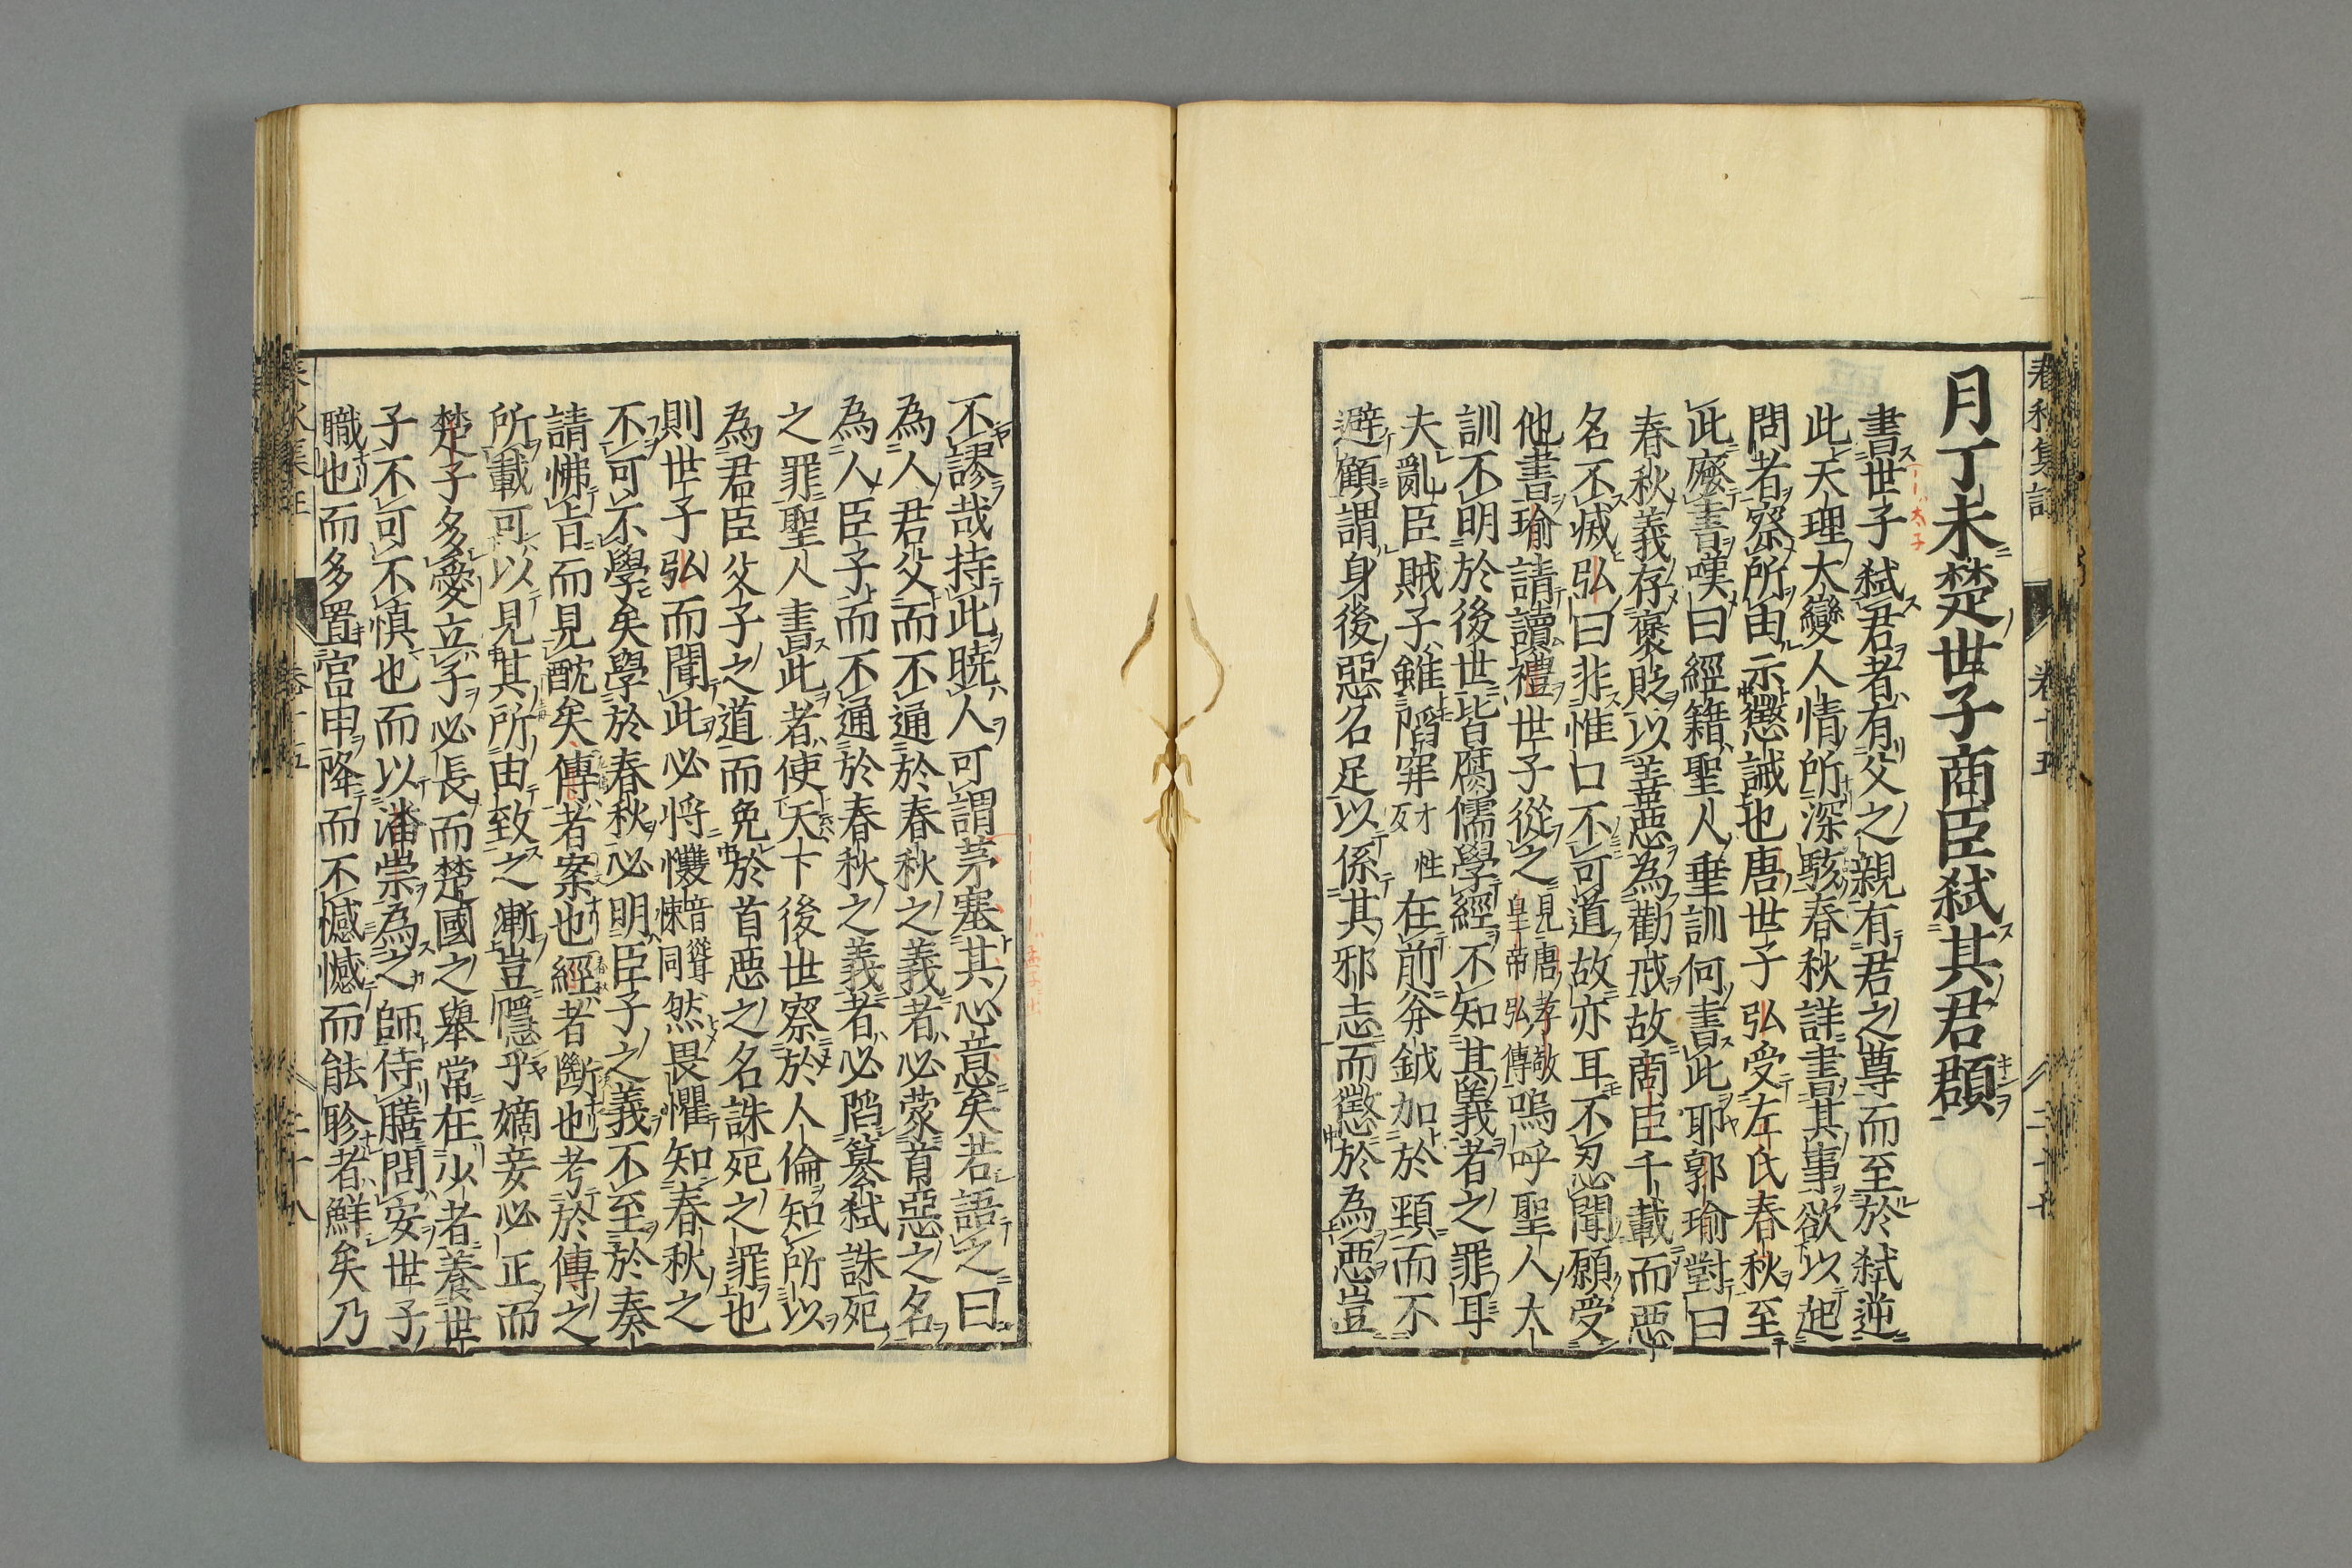 月丁未楚世子商臣弑其君頵
書世子弑君者有父之親有君之尊而至於弑逆
此天理大變人情所深駭春秋詳書其事欲以起
問者察所由示懲誡也唐世子弘受左氏春秋至
此廢書嘆曰經籍聖人垂訓何書此耶郭瑜對曰
春秋義存褒貶以善惡為勸戒故商臣千載而惡
名不滅弘曰非惟口不可道故亦耳不忍聞願受
他書瑜請讀禮世子從之見唐孝敬皇帝弘傳嗚呼聖人大
訓不明於後世皆腐儒學經不知其義者之罪耳
夫亂臣賊子雖陷穽才性反在前斧鉞加於頸而不
避顧謂身後惡名足以係其邪志而懲於為惡豈
不謬哉持此曉人可謂茅塞其心意矣若語之曰
為人君父而不通於春秋之義者必蒙首惡之名
為人臣子而不通於春秋之義者必陷篡弑誅死
之罪聖人書此者使天下後世察於人倫知所以
為君臣父子之道而免於首惡之名誅死之罪也
則世子弘而聞此必將戄音聳悚同然畏懼知春秋之
不可不學矣學於春秋必明臣子之義不至於奏
請怫旨而見酖矣傳者案也經者斷也考於傳之
所載可以見其所由致之漸豈隱乎嫡妾必正而
楚子多愛立子必長而楚國之舉常在少者養世
子不可不慎也而以潘崇為之師侍膳問安世子
職也而多置宮甲降而不憾憾而能眕者鮮矣乃
春秋集註
卷十五
二十八